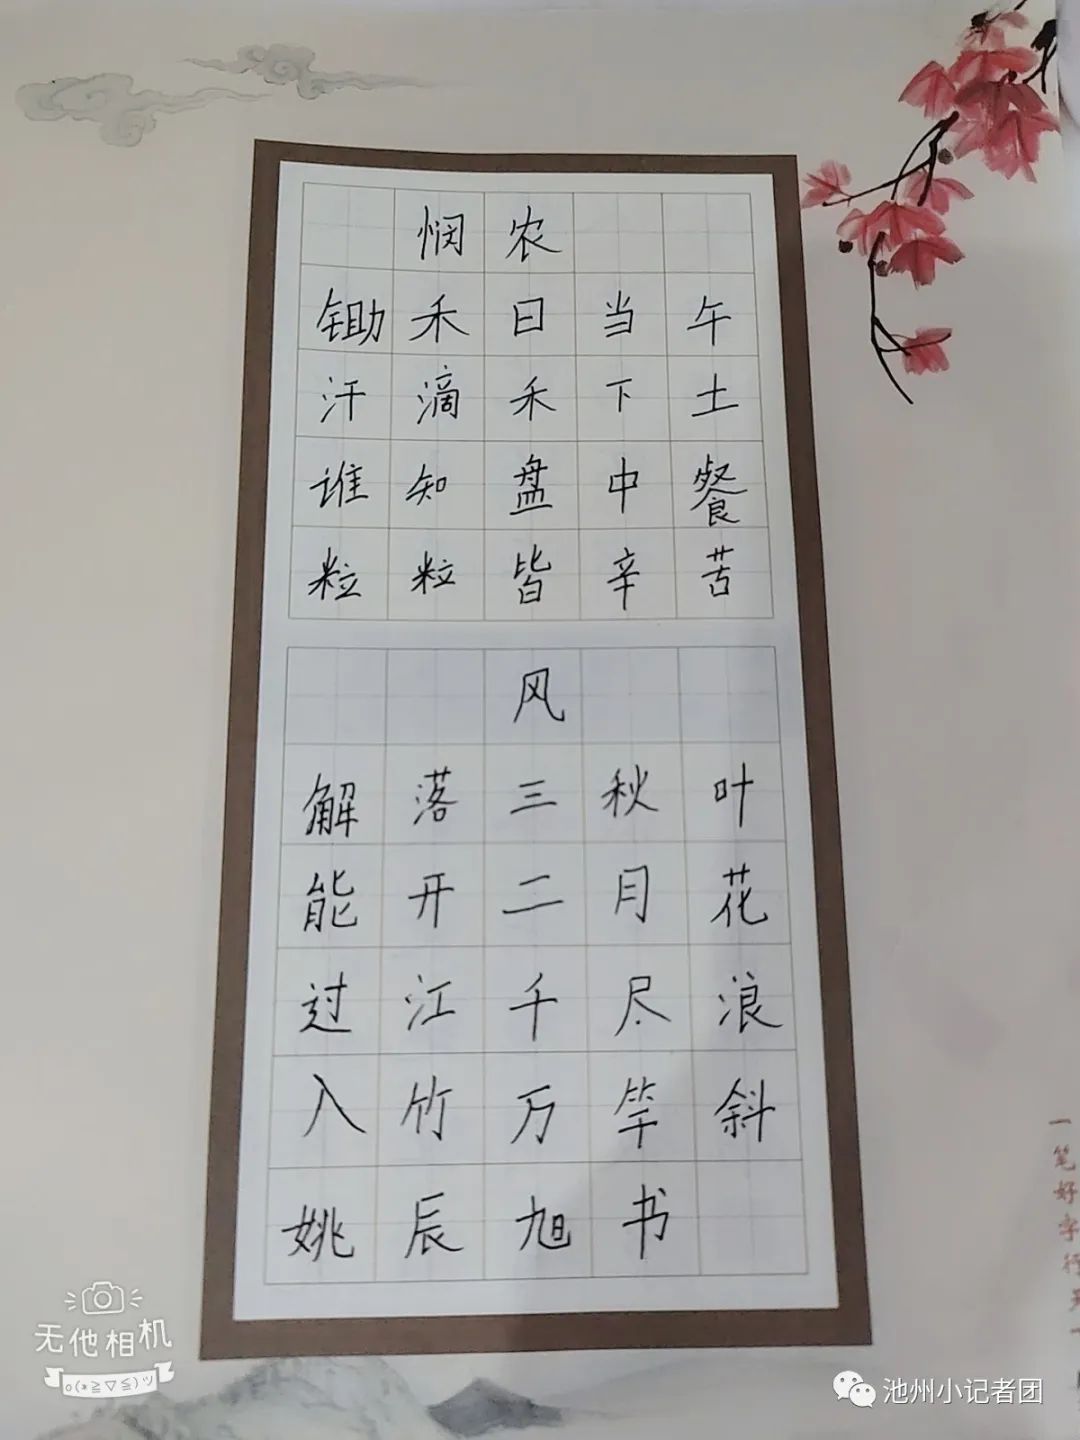 悯农
锄禾日当午
汗滴禾下土
谁知盘中餐
粒粒皆辛苦
风
解落三秋叶
能开二月花
过江千尽浪
入竹万竿斜
姚辰旭书
一笔好字行天
无他相机
o(*≧▽≦)ツ
池州小记者团